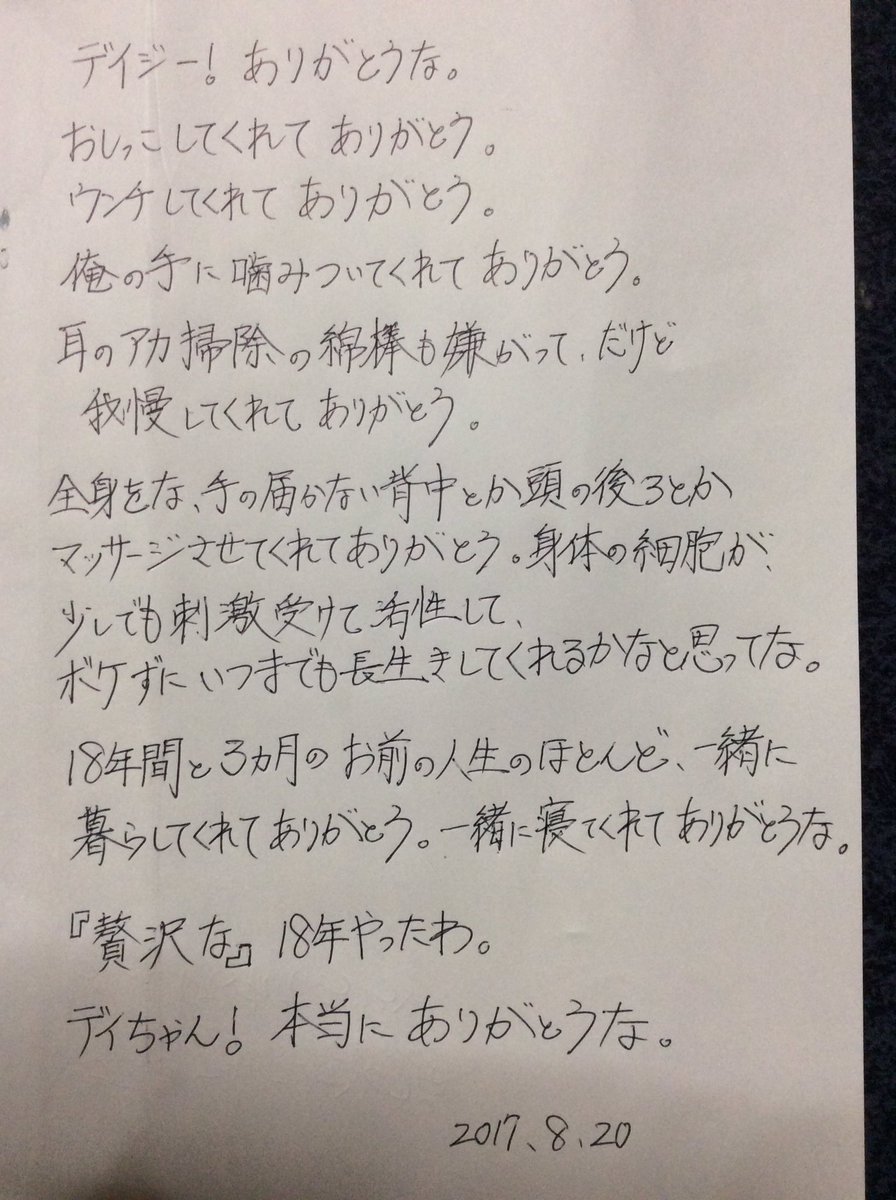 デイジー！ありがとうな。
おしっこしてくれてありがとう。
ウンチしてくれてありがとう。
俺の手に噛みついてくれてありがとう。
耳のアカ掃除の綿棒も嫌がって、だけど
我慢してくれてありがとう。
全身をな、手の届かない背中とか頭の後ろとか
マッサージさせてくれてありがとう。身体の細胞が、
少しでも刺激受けて活性して、
ボケずにいつまでも長生きしてくれるかなと思ってな。
18年間と3カ月のお前の人生のほとんど、一緒に
暮らしてくれてありがとう。一緒に寝てくれてありがとうな。
『贅沢な』18年やったわ。
デイちゃん！本当にありがとうな。
2017、8、20